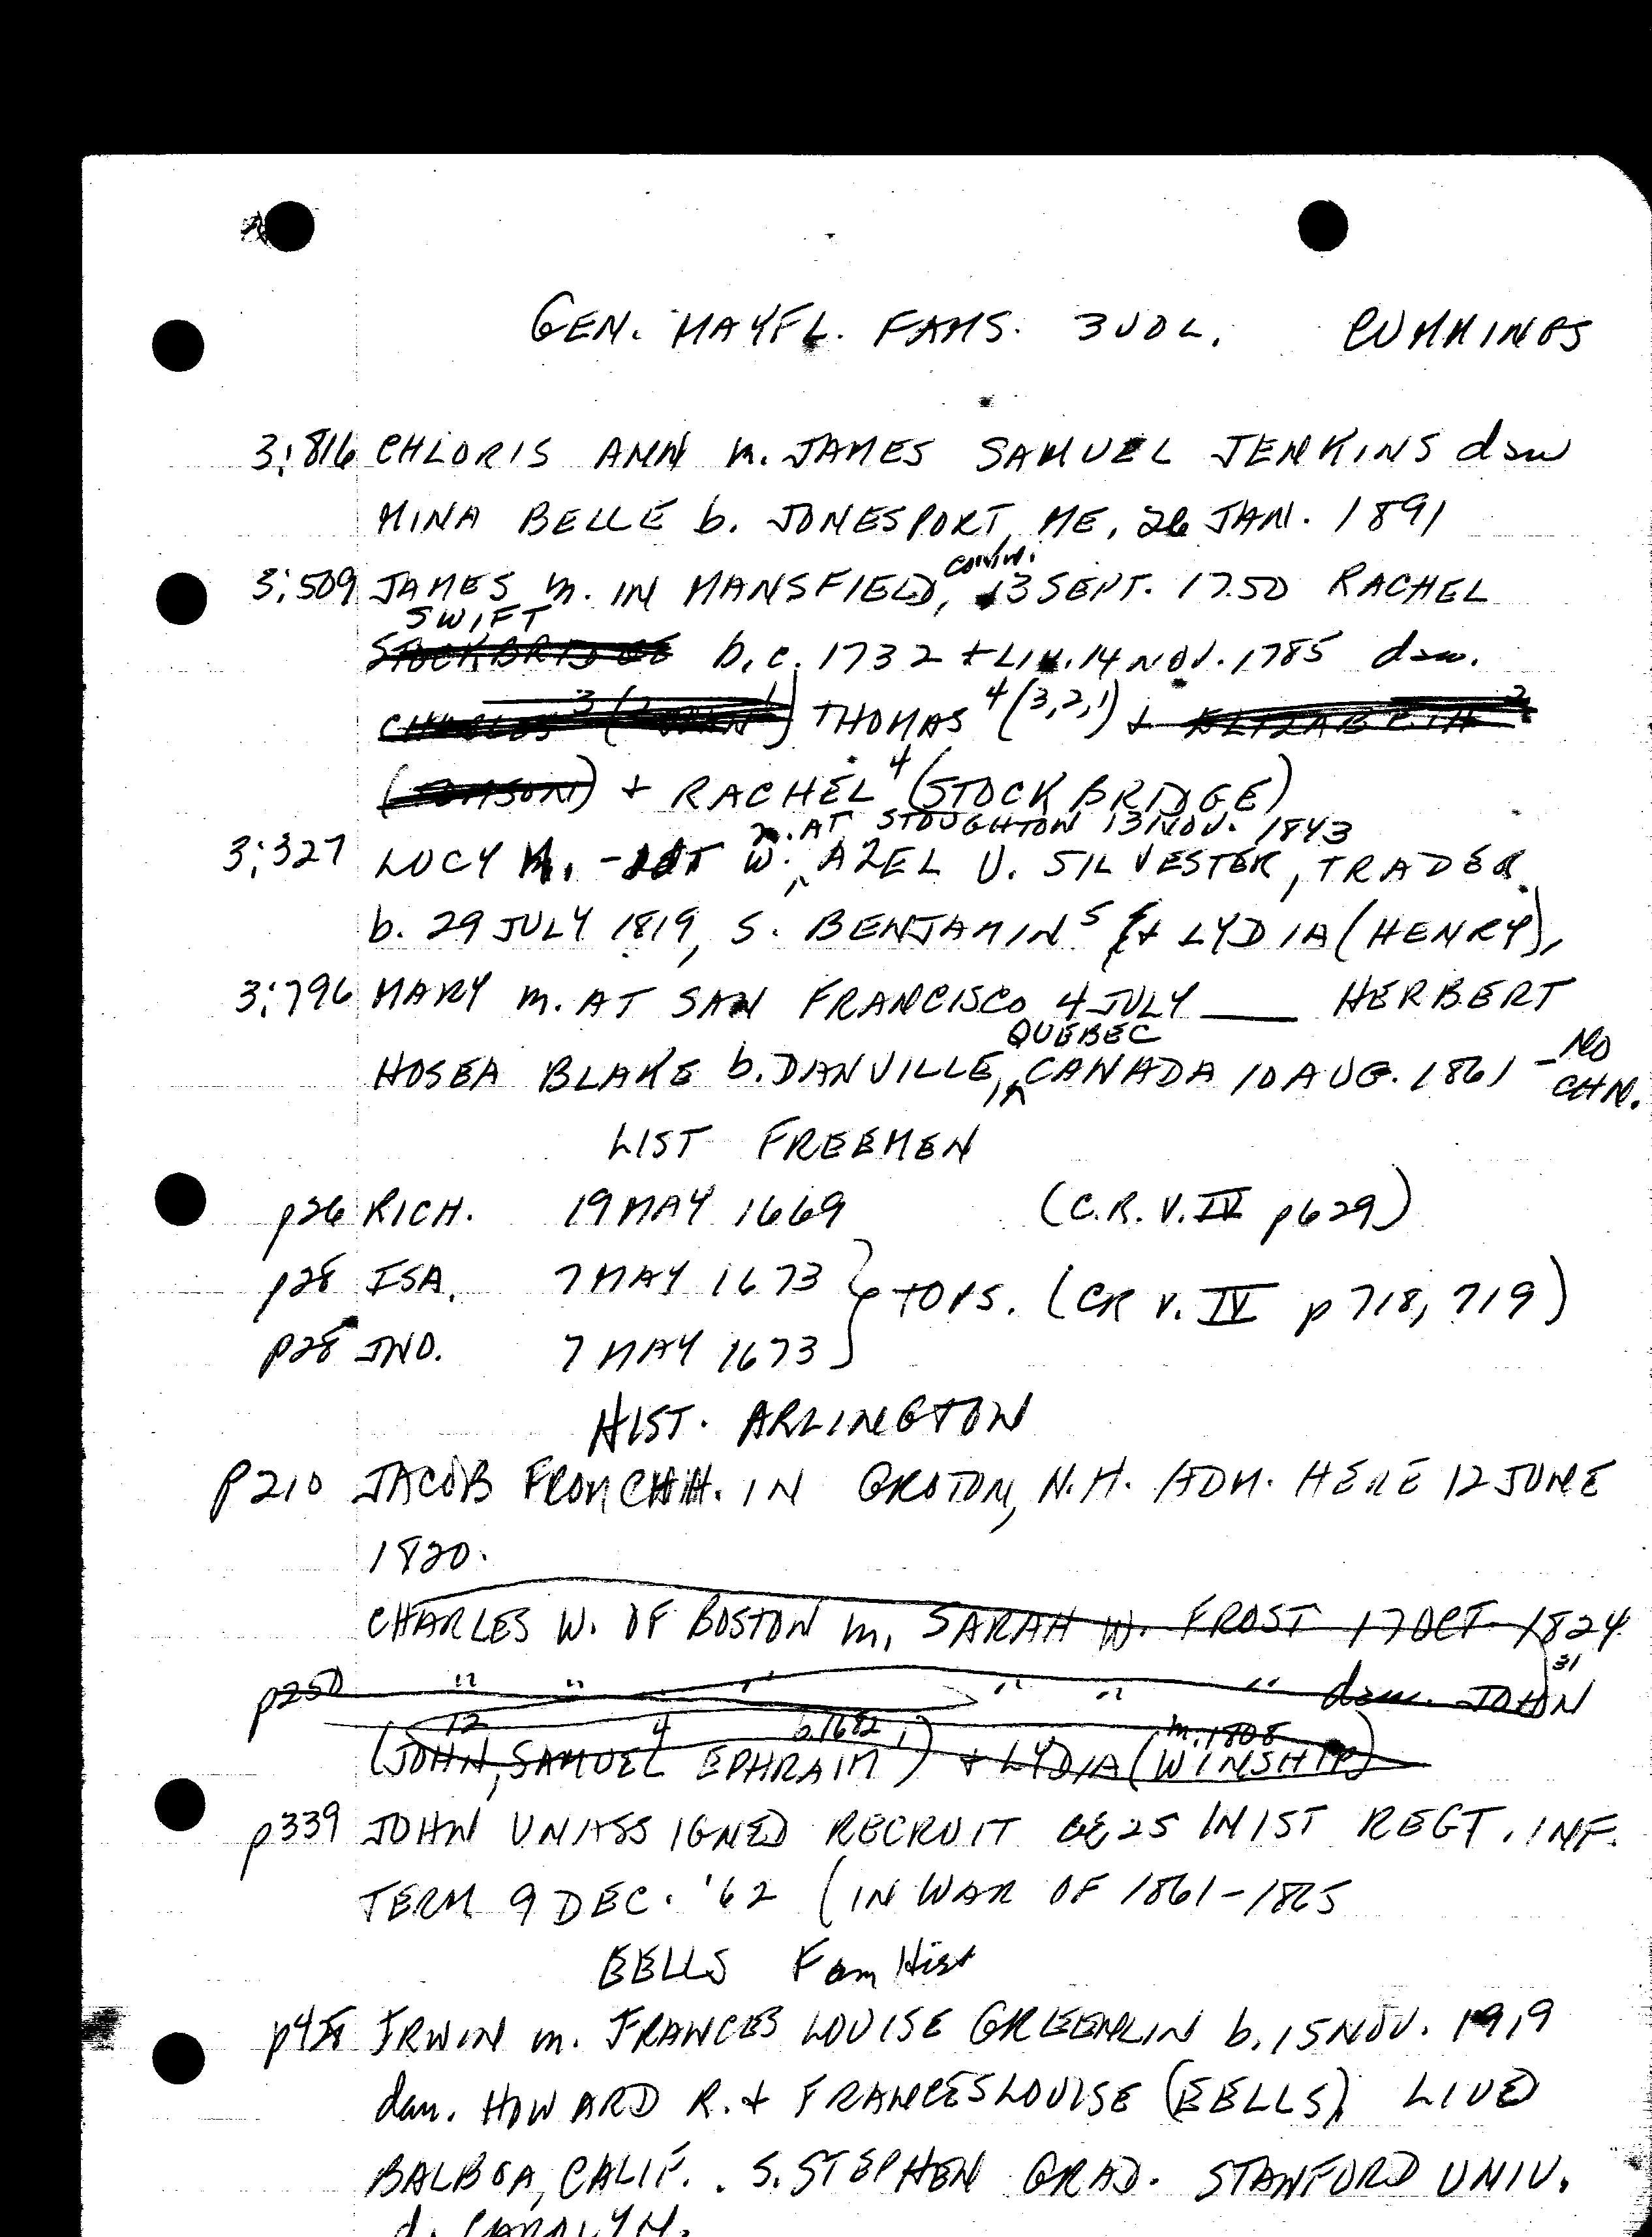 GEN. MAYFL. FAMS. 3 VOL. CUMMINGS
3:816 CHLORIS ANN m. JAMES SAMUEL JENKINS dau
MINA BELLE b. JONESPORT, ME, 26 JAN. 1891
3:509 JAMES m. IN MANSFIELD, CONN. 13 SEPT. 1750 RACHEL
SWIFT
STOCKBRIDGE b.c. 1732 + LIV. 14 NOV. 1785 dau.
THOMAS 4 (3,2,1) + ELIZABETH
+ RACHEL 4 (STOCKBRIDGE)
m. AT STOUGHTON 13 NOV. 1843
3:327 LUCY M. - 1ST W. AZEL U. SILVESTER, TRADER
b. 29 JULY 1819, S. BENJAMIN 5 + LYDIA (HENRY),
3:796 MARY m. AT SAN FRANCISCO 4 JULY ___ HERBERT
QUEBEC
HOSEA BLAKE b. DANVILLE, CANADA 10 AUG. 1861 - NO CHN.
LIST FREEMEN
p26 RICH. 19 MAY 1669 (C.R. V. IV p629)
p28 ISA. 7 MAY 1673 } TOPS. (CR V. IV p 718, 719)
p28 JNO. 7 MAY 1673
HIST. ARLINGTON
P210 JACOB FROM CHH. IN GROTON, N.H. ADM. HERE 12 JUNE
1820.
CHARLES W. OF BOSTON m. SARAH W. FROST 17 OCT 1824
31
p250 " " " " " " dau. JOHN
12 4 b.1682 m.1808
(JOHN, SAMUEL EPHRAIM) + LYDIA (WINSHIP)
p339 JOHN UNASSIGNED RECRUIT 25 IN 1ST REGT. INF.
TERM 9 DEC. '62 (IN WAR OF 1861-1865
EELLS Fam Hist
IRWIN m. FRANCES LOUISE GREENLIN b. 15 NOV. 1919
dau. HOWARD R. + FRANCES LOUISE (EELLS) LIVED
BALBOA, CALIF. . S. STEPHEN GRAD. STANFORD UNIV.
d. CAROLYN.